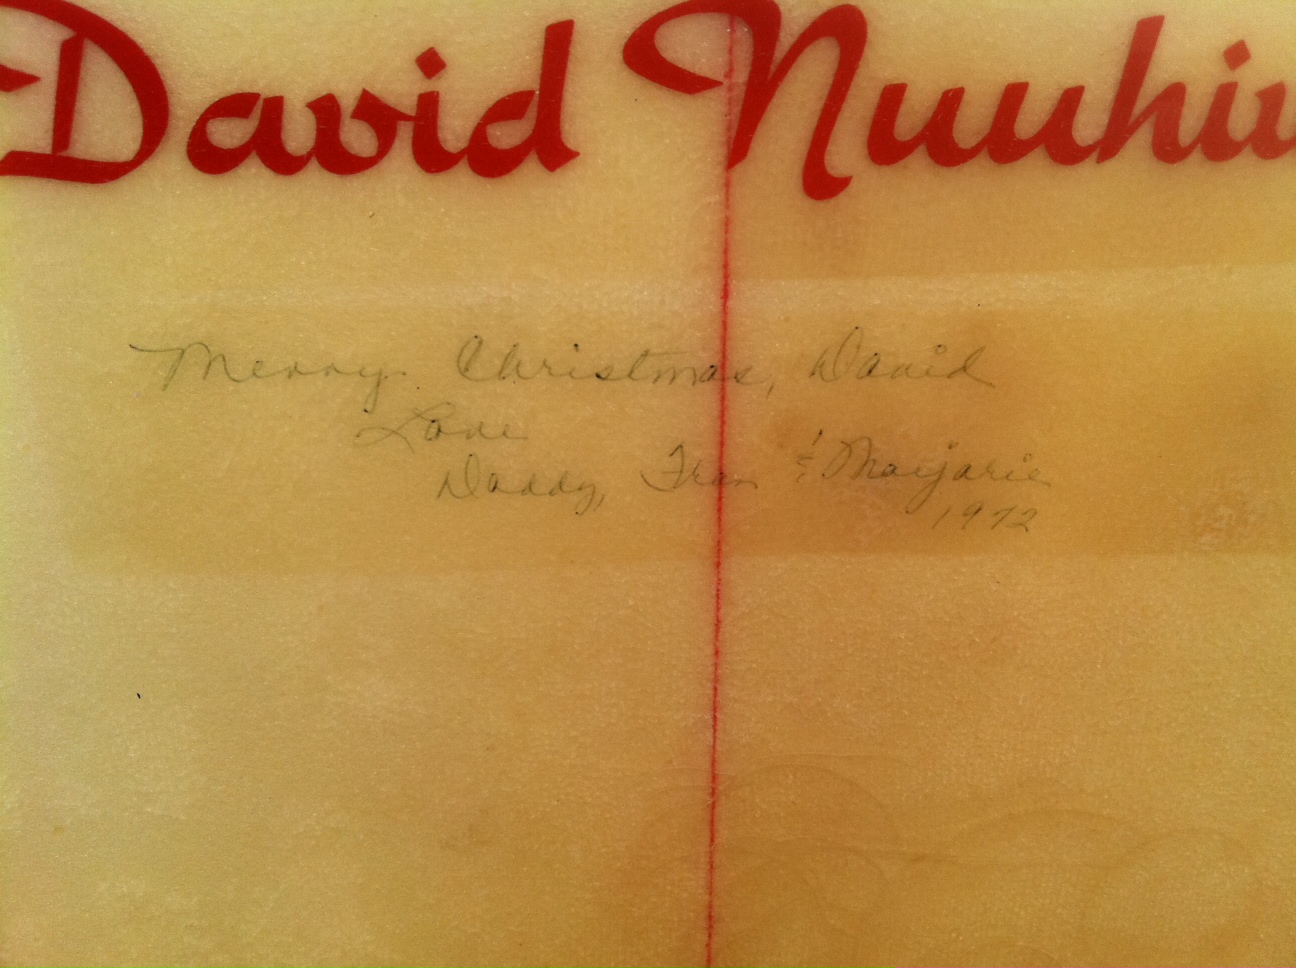 David Nuuhiw
Merry Christmas, David
Love
Daddy, Fran & Marjorie
1972